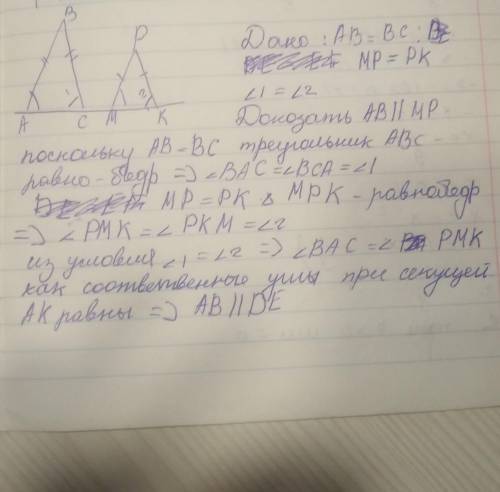 B
P
1
2
A C M K
Дано: AB = BC;
MP = PK
∠1 = ∠2
Доказать AB || MP
поскольку AB = BC треугольник ABC -
равно-бедр => ∠BAC = ∠BCA = ∠1
MP = PK & MPK - равнобедр
=> ∠PMK = ∠PKM = ∠2
из условия ∠1 = ∠2 => ∠BAC = ∠ PMK
как соответвенные углы при секущей
AK равны => AB || DE